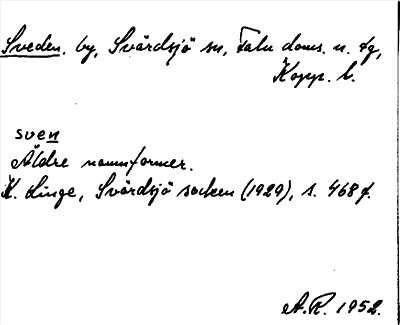 Sveden. by, Svärdsjö sn, Falu doms. n. tg,
Kopp. l.
sven
Äldre namnformer.
K. Linge, Svärdsjö socken (1929), s. 468 f.
A.R. 1952.